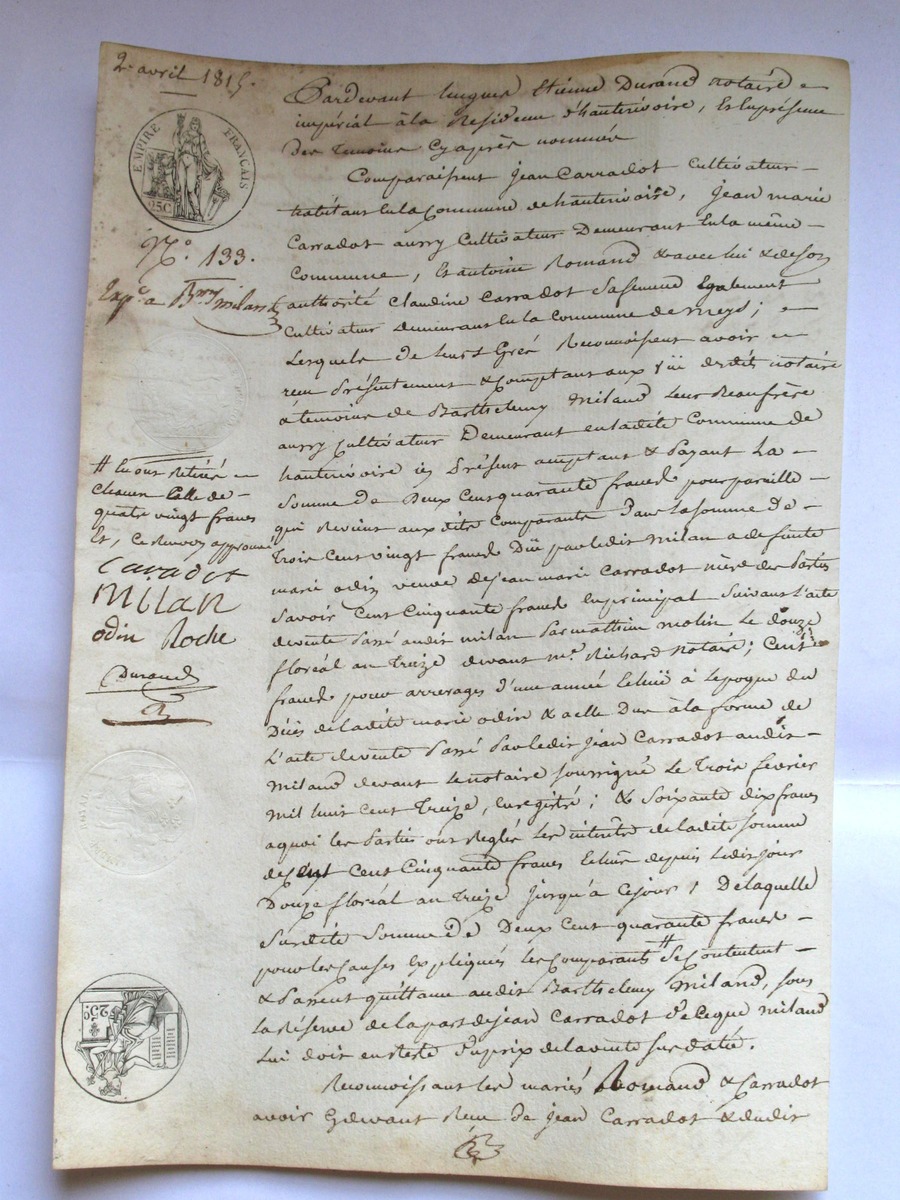 2 avril 1815.
EMPIRE FRANÇAIS
25C
N.º 133.
Exp.e a Bmy miland
Pardevant Etienne Durand notaire
impérial à la Residence d'hauterivoire, Et En presence
des temoins Cy après nommés
Comparaissent jean Carradot Cultivateur
habitant En la Commune de hauterivoire, jean marie
Carradot aussy Cultivateur Demeurant En la même
Commune, Et antoine Romand & avec lui & de son
authorité Claudine Carradot Sa femme Egalement
Cultivateur demeurant En la Commune de meys;
Lesquels de leurs Gré Reconnoissent avoir
reçu Présentement & Comptant aux dudit notaire
& temoins de Barthelemy Miland leur Beaufrère
aussy Cultivateur Demeurant en ladite Commune de
hauterivoire ici Présent acceptant & Payant La
Somme de Deux Cent quarante francs pour pareille
qui Revient aux dits Comparants Dans la somme de
Trois Cent vingt francs Düe par ledit milan a defunte
marie odin veuve de jean marie Carradot mère des Parties
Savoir Cent Cinquante francs En principal Suivant L'acte
de vente Passé audit milan Par mathieu molin Le douze
floréal an Treize devant me. Richard notaire; Cent
francs pour arrerages d'une année Echüe à l'epoque du
Décès de ladite marie odin & a elle Due à la forme de
L'acte de vente Passé Par ledit jean Carradot audit
Miland devant le notaire soussigné Le Trois fevrier
mil huit Cent Treize, Enregistré; & Soixante dix francs
a quoi les Parties ont Reglé les interets de ladite somme
de Cent Cinquante francs Echus depuis ledit jour
Douze floréal an Treize jusqu'à Ce jour, De laquelle
Susdite Somme de Deux Cent quarante francs
pour les Causes Expliquées les Comparants # Se Contentent
& Passent quittance audit Barthelemy Miland, sous
La Réserve de la part de jean Carradot de Ce que Miland
Lui doit en reste du prix de la vente sus datée.
Reconnoissant les mariés Romand & Carradot
avoir Cy devant Reçu de jean Carradot & dudit
# En ont Retiré
Chacun Celle de
quatre vingt francs
Et, Ce Renvoy approuvé
Caradot
MILAN
odin Roche
Durand
25C